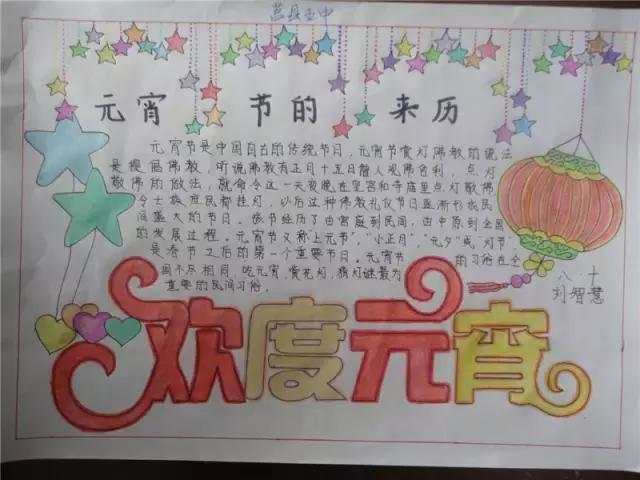 莒县五中
元宵节的来历
元宵节是中国自古的传统节日,元宵节赏灯佛教的说法
是提倡佛教,听说佛教有正月十五日僧人观佛舍利,点灯
敬佛的做法,就命令这一天夜晚在皇宫和寺庙里点灯敬佛
令士族庶民都挂灯,以后这种佛教礼仪节日逐渐形成民
间盛大的节日。该节经历了由宫庭到民间,由中原到全国
的发展过程。元宵节又称"上元节","小正月","元夕"或"灯节"
是春节之后的第一个重要节日。元宵节的习俗在全
国不尽相同,吃元宵赏花灯,猜灯谜最为
重要的民间习俗。
八、十
刘智慧
欢度元宵